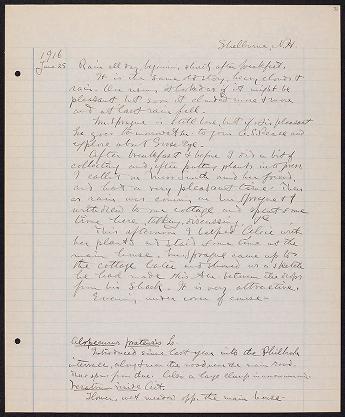 Shelburne, N.H.
1916
June 25 Rain all day, beginning shortly after breakfast.
It is the same old story, heavy clouds &
rain. One is looked as if it might be
pleasant but soon it clouded more & more
and at last rain fell.
Mr. Sprague is still here, but if it is pleasant
he goes to to join A.S. Pease and
explore about
After breakfast & before I did a bit of
collecting and after putting plants into press
I called on Miss Smith and her friend,
and had a very pleasant time. Then
as rain was coming on Mr. Sprague & I
withdrew to my cottage and spent some
time there talking, discussing etc.
This afternoon I helped Celia with
her plants and I stayed some time at the
main house. Mr. Sprague came up to
the cottage later and showed us a sketch
he had made this A.M. between the drops
from his Shack. It is very attractive.
Evening under cover of course
Alopecurus pratensis L.
Introduced since last year into the Philbrook
intervale, along near the road near the main road.
Also a large clump
Veratrum viride Ait.
Flower, wet meadow opp. the main house